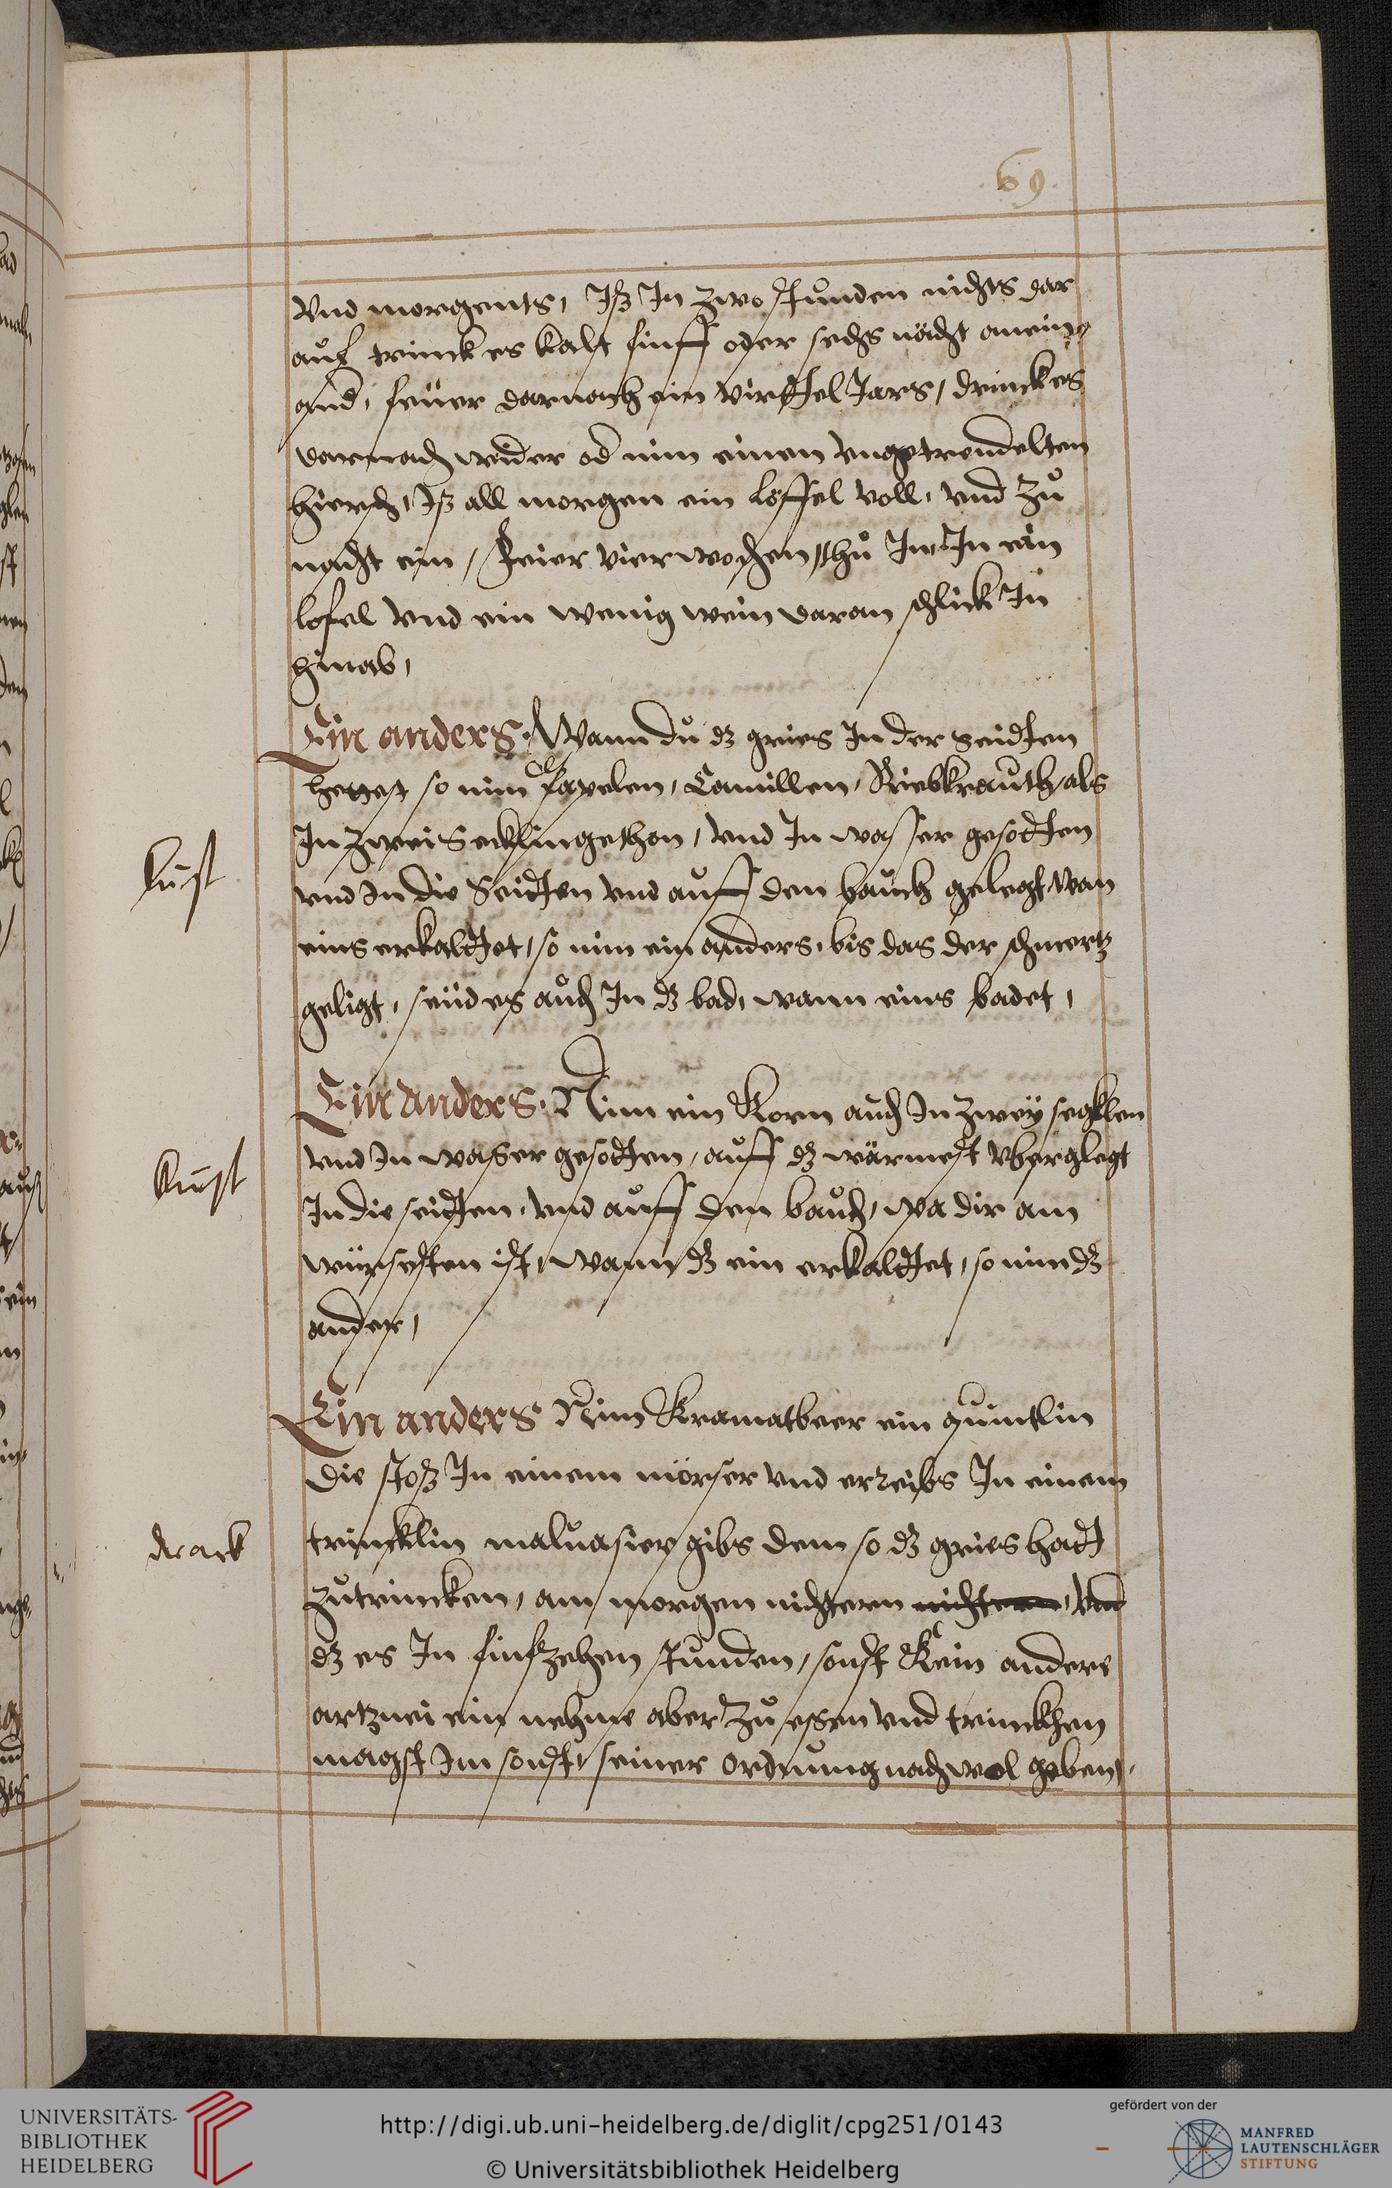 69.
Vnd morgents, Iß In zwo stunden nichts dar
auf trinck es kalt finff oder sechs nächt anein
and, feüer darnach ein virttel Jars, drinck es
darnach wider od nim einen vngetrendelten
hiersch, Iß all morgen ein löffel voll, vnd zů
nacht ein, Feier vier wochen, thů In In ein
lofel vnd ein wenig wein daran schlick In
hinab,
Ein anders. Wann dů dz gries In der Seidten
hettest so nim papelen, Camillen, Riebkrauth, als
In zwei Secklin gethon, vnd In wasser gesodten
vnd In die Seidten vnd auff den bauch gelegt, wan
eins erkaldtet, so nim ein anders, bis das der schmertz
geligt, seüd es auch In dz bad, wann eins badet,
kunst
Ein anders. Nim ein Korn auch In zwey segklen
vnd In wasser gesodten, auff dz wärmest vberglegt
In die seidten, vnd auff den bauch, wa dir am
würsesten ist, wann dz ein erkaldtet, so nim dz
ander,
kunst
Ein anders Nim Kramatbeer ein quintlin
die stoß In einem mörser vnd erreibs In einem
trincklin maluasier gibs dem so dz gries hadt
zutrincken, am morgen nichtern nichtern, vnd
dz es In finfzehen stunden, sonst Kein andere
artznei ein nehme aber zů essen vnd trinckhen
magst Im sonst, seiner ordnung nach wol geben,
dranck
UNIVERSITÄTS-
BIBLIOTHEK
HEIDELBERG
http://digi.ub.uni-heidelberg.de/diglit/cpg251/0143
© Universitätsbibliothek Heidelberg
gefördert von der
MANFRED
LAUTENSCHLÄGER
STIFTUNG